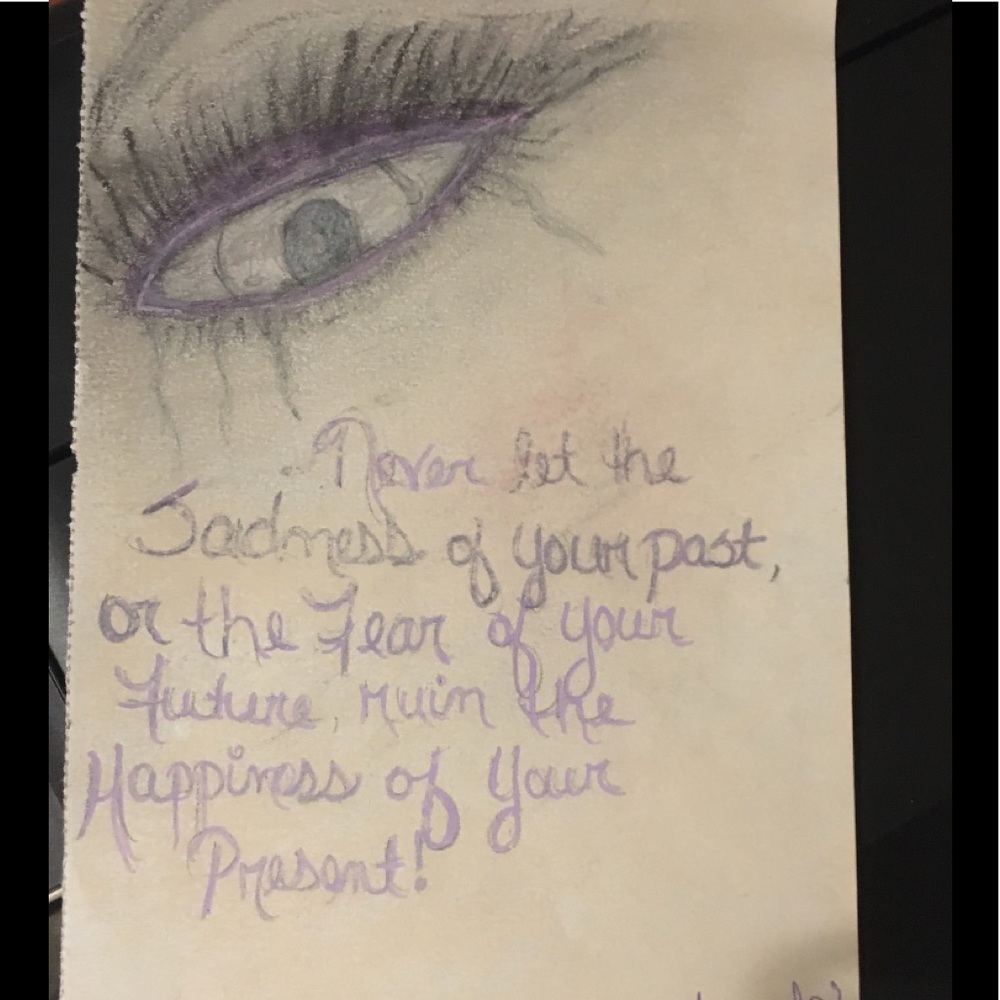 Never let the
Sadness of your past,
or the Fear of your
Future, ruin the
Happiness of Your
Present!